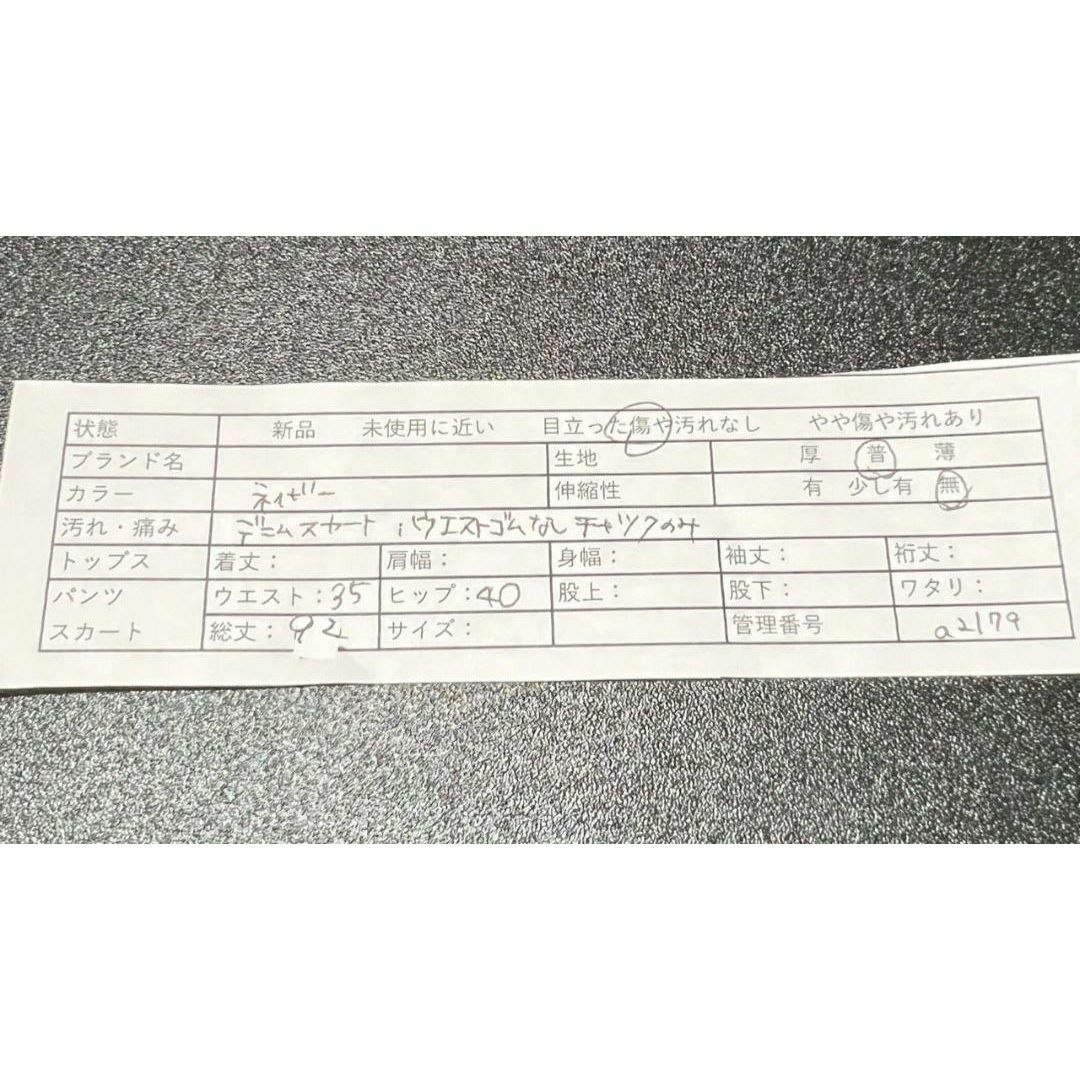 状態 新品 未使用に近い 目立った傷や汚れなし やや傷や汚れあり
ブランド名 生地 厚 普 薄
カラー ネイビー 伸縮性 有 少し有 無
汚れ・痛み デニムスカート ウエストゴムなし チャックのみ
トップス 着丈： 肩幅： 身幅： 袖丈： 裄丈：
パンツ ウエスト：35 ヒップ：40 股上： 股下： ワタリ：
スカート 総丈：92 サイズ： 管理番号 a2179